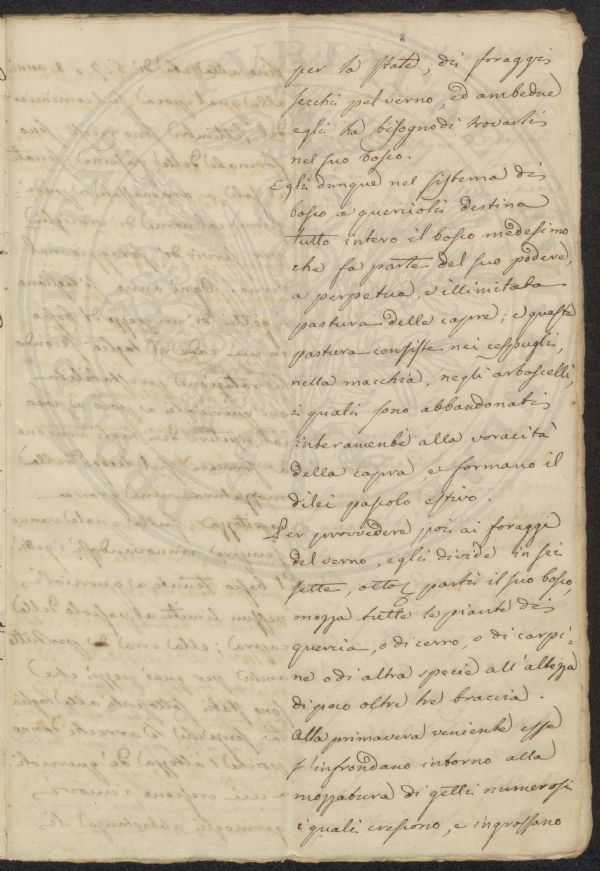 8
per la state, di foraggi
secchi pel verno, ed ambedue
egli ha bisogno di trovarli
nel suo bosco.
Egli dunque nel sistema di
bosco a quercioli destina
tutto intero il bosco medesimo
che fa parte del suo podere,
a perpetua, e illimitata
pastura della capre; e questa
pastura consiste nei cespugli,
nella macchia, negli arboscelli,
i quali sono abbandonati
interamente alla voracità
della capra, e formano il
di lei pascolo estivo.
Per provvedere poi ai foraggi
del verno, egli divide in sei
sette, otto parti il suo bosco,
mozza tutte le piante di
quercia, o di cerro, o di carpi=
ne o di altra specie all'altezza
di poco oltre tre braccia.
Alla primavera veniente esse
s'infrondano intorno alla
mozzatura di getti numerosi
i quali crescono, e ingrossano